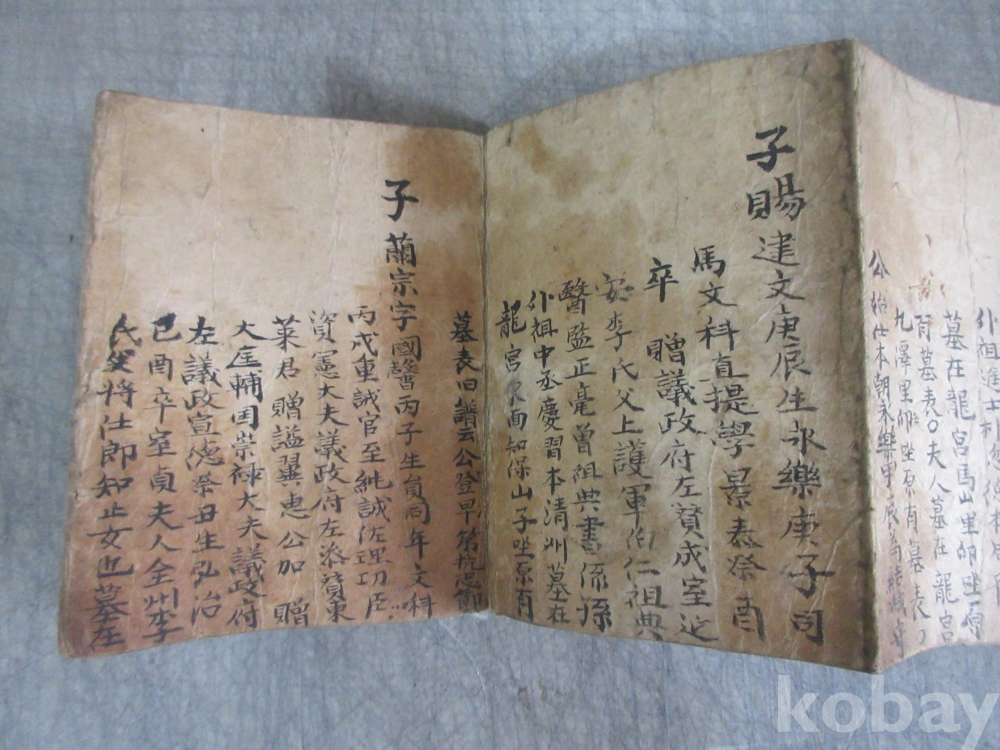 外祖進士
墓在龍宮馬山里卯坐原
有墓表○夫人墓在龍宮
九潭里卯坐原有墓表
公始仕本朝永樂甲辰
子賜建文庚辰生永樂庚子司
馬文科直提學景泰癸酉
卒 贈議政府左贊成室延
安李氏父上護軍伯仁祖典
醫監正亳曾祖典書係孫
外祖中丞慶習本清州墓在
龍宮 面知保山子坐原有
墓表旧譜云公登甲第抗
子蘭宗字國馨丙子生員同年文科
丙戌重試官至純誠佐理功臣
資憲大夫議政府左參贊東
萊君贈謚翼惠公加 贈
大匡輔国崇禄大夫議政府
左議政宣德癸丑生弘治
己酉卒室貞夫人全州李
氏父将仕郎知止女也墓在
kobay